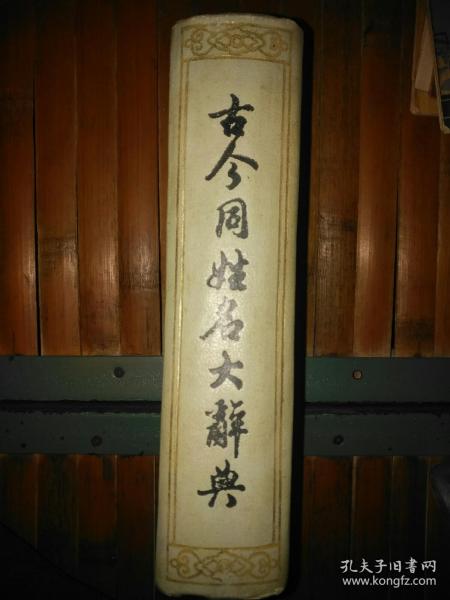 古今同姓名大辭典
孔夫子旧书网
www.kongfz.com